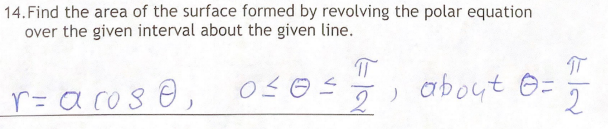 14.Find the area of the surface formed by revolving the polar equation
over the given interval about the given line.
r = a cos θ, 0 ≤ θ ≤ π/2, about θ = π/2